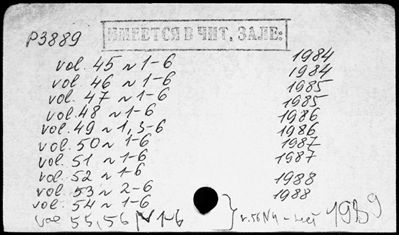 P3889
ИМЕЕТСЯ В ЧИТ. ЗАЛЕ:
vol. 45 N 1-6 1984
vol. 46 N 1-6 1984
vol. 47 N 1-6 1985
vol. 48 N 1-6 1985
vol. 49 N 1, 3-6 1986
vol. 50 N 1-6 1986
vol. 51 N 1-6 1987
vol. 52 N 1-6 1987
vol. 53 N 2-6 1988
vol. 54 N 1-6 1988
vol 55, 56 N 1-6 1989